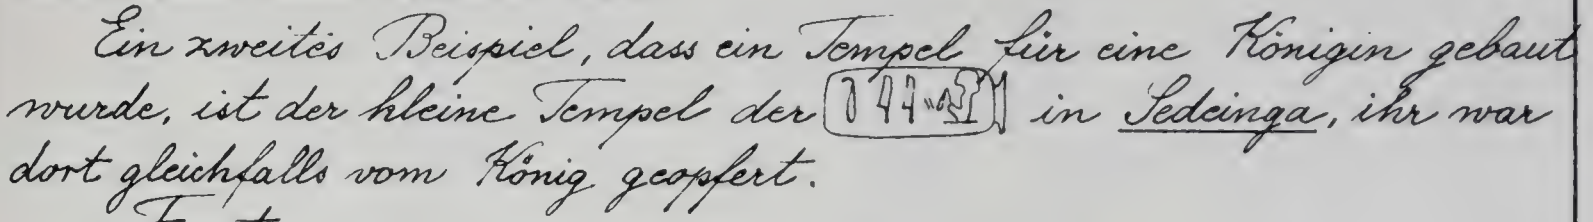 Ein zweites Beispiel, dass ein Tempel für eine Königin gebaut
wurde, ist der kleine Tempel der in Sedeinga, ihr war
dort gleichfalls vom König geopfert.